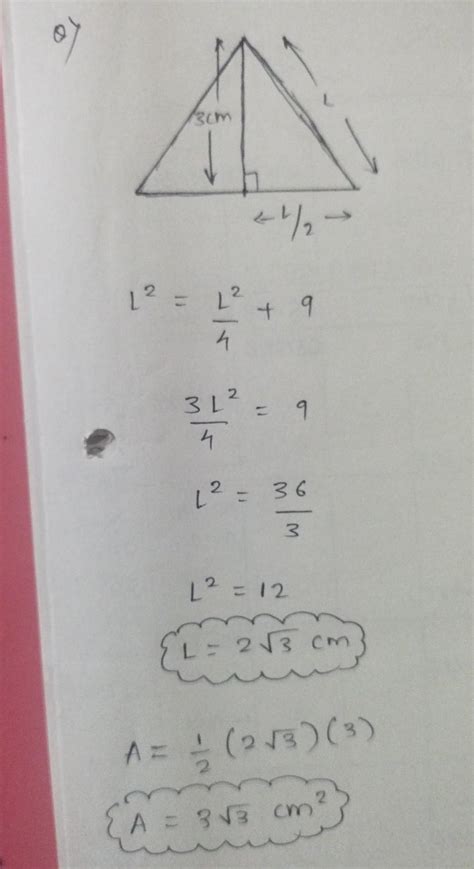 Q)
L
3cm
L/2
L² = L²/4 + 9
3L²/4 = 9
L² = 36/3
L² = 12
L = 2√3 cm
A = 1/2 (2√3)(3)
A = 3√3 cm²